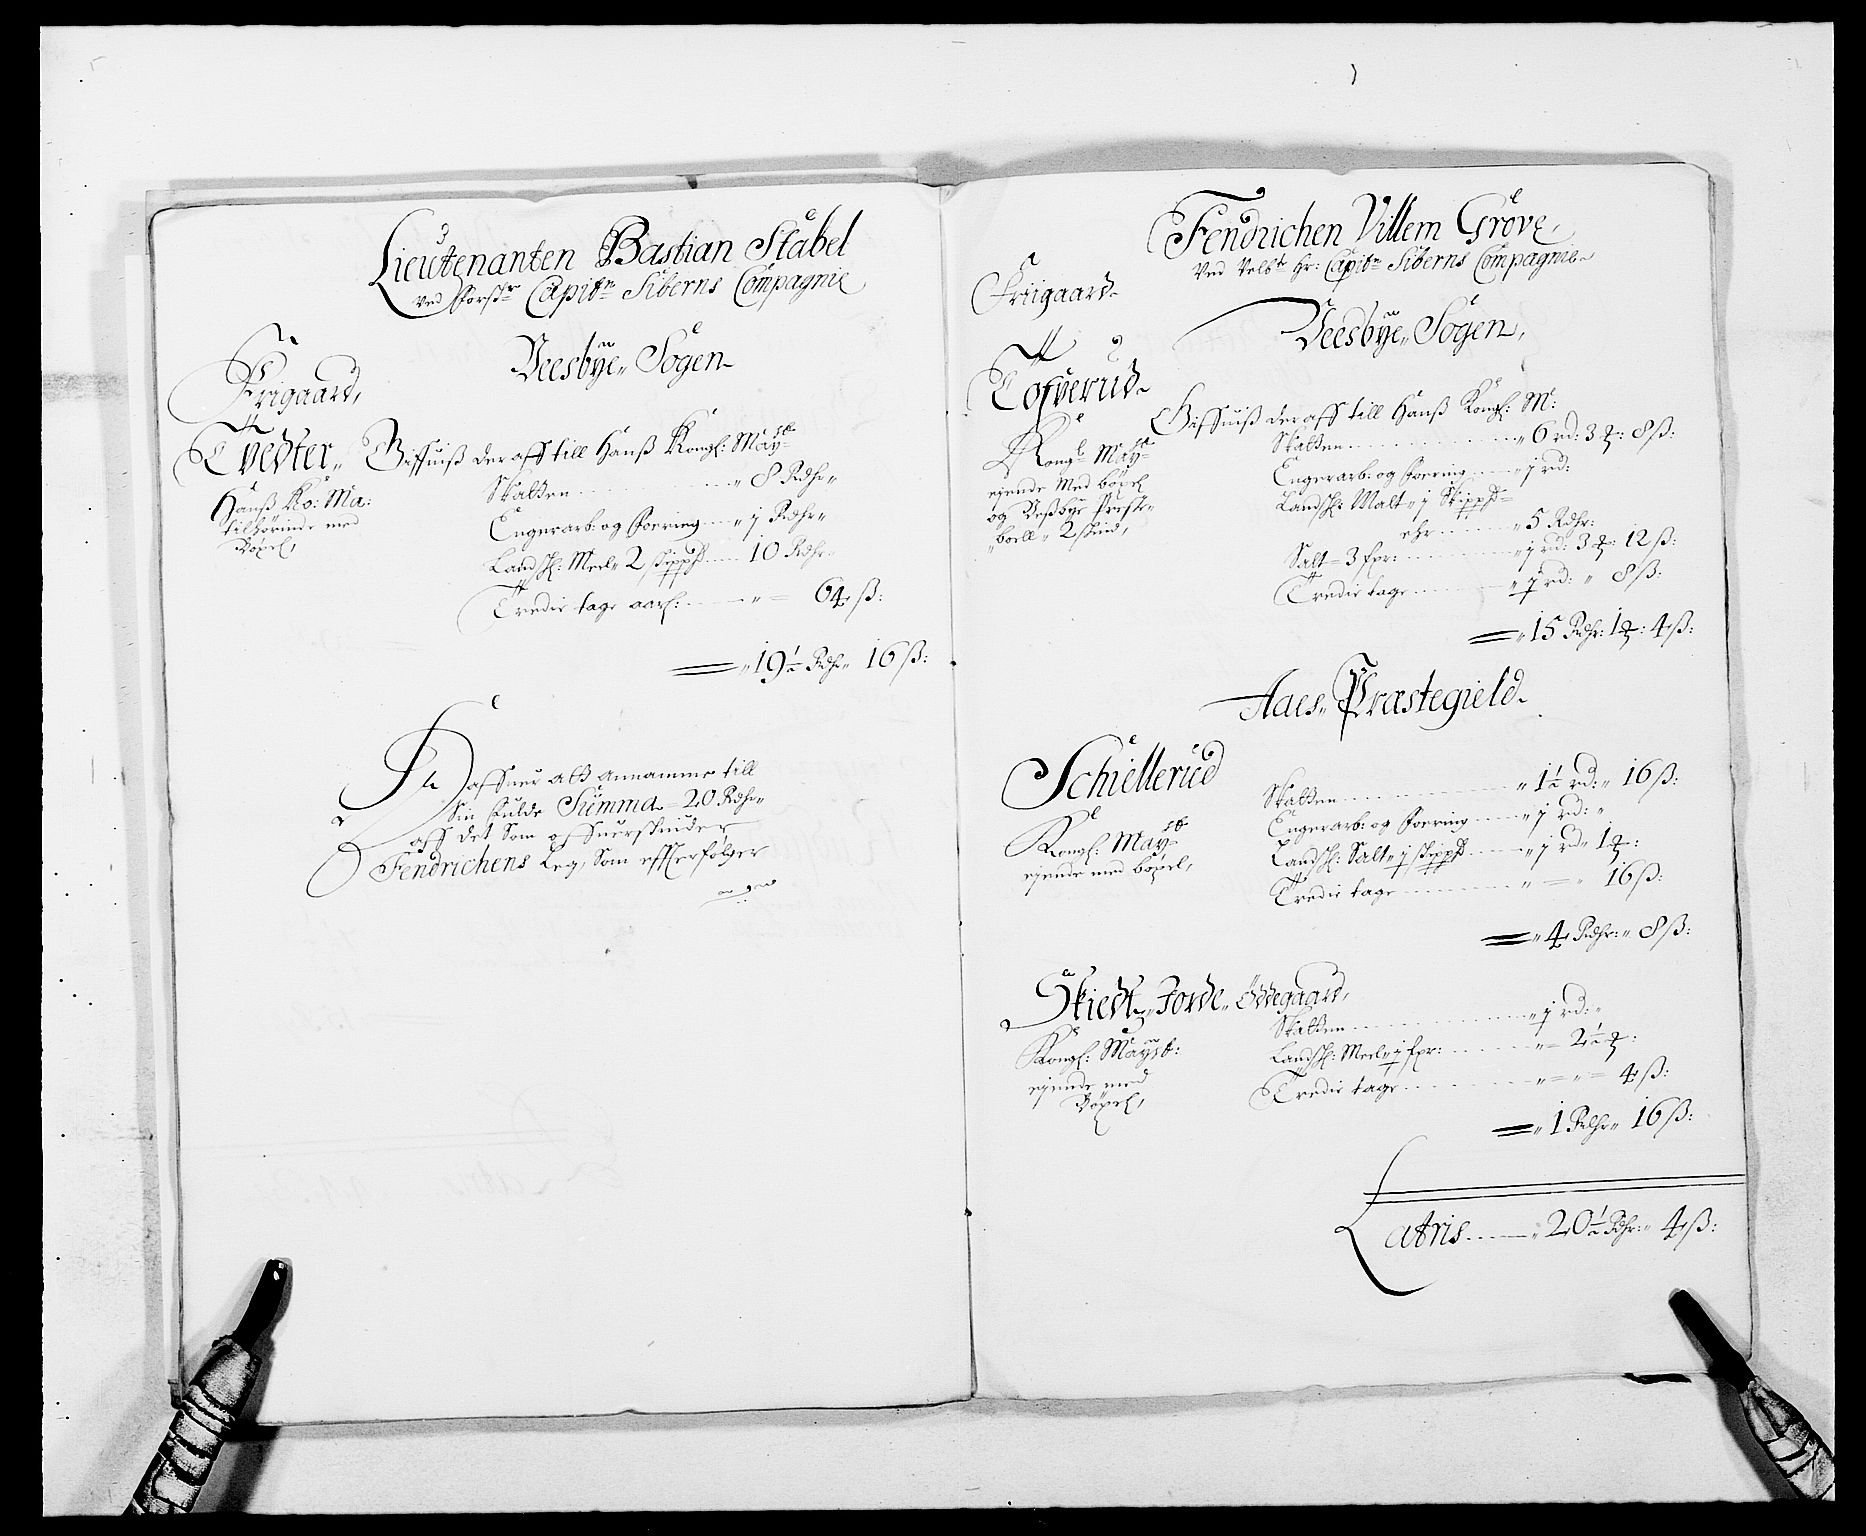 Lieutenanten Bastian Stabel
ved forsͭ Capitⁿ Siberns Compagnie
Veesbÿe Sogen
Friigaard,
Tvedter
Hanß Ko: Ma:
tilhörinde med
Böxel,
Giffuiß der aff till Hanß Kongl: Maÿᵗ
Skatten ... 8 Rdhr
Engerarb: og foering ... j Rdhr
Landsk: Meel 2 skippd ... 10 Rdhr
Tredie tage aarl: ... 64 ß:
19½ Rdhr 16 ß:
haffuer att annamme till
Sin fulde Summa 20 Rdhr
aff det Som offuerskiuder
Fendrichens Leg, Som effterfölger
Fendrichen Villem Grove
Ved Velbᵗ Hr: Capitⁿ Siberns Compagnie
Friigaard
Veesbÿe Sogen,
Tofverud
Kongl Maÿᵗ
ejende Med böxel
og Veßbÿe Preste
boell 2 skind,
Giffuiß der aff till Hanß Kongl: M:
Skatten ... 6 rd: 3 ꝛ: 8 ß:
Engerarb: og foering ... j rd:
Landsk: Malt j Skippd
ehr ... 5 Rdhr:
Salt 3 fpr: ... j rd: 3 ꝛ: 12 ß:
Tredie tage ... j rd: 8 ß:
15 Rdhr: 1 ꝛ: 4 ß:
Aaes Præstegield
Schiellerud
Kongl: Maÿᵗ
ejende med böxel,
Skatten ... 1½ rd: 16 ß:
Engerarb: og foering ... j rd:
Landsk: Salt j skippd ... j rd 1 ꝛ:
Tredie tage ... 16 ß:
4 Rdhr: 8 ß:
Skiedt Jorde Ödegaard,
Kongl: Maÿst:
ejende med
Böxel,
Skatten ... j rd:
Landsk: Meel j fpr: ... 2½ ꝛ:
Tredie tage ... 4 ß:
1 Rdhr 16 ß:
Latris ... 20½ Rdhr: 4 ß: